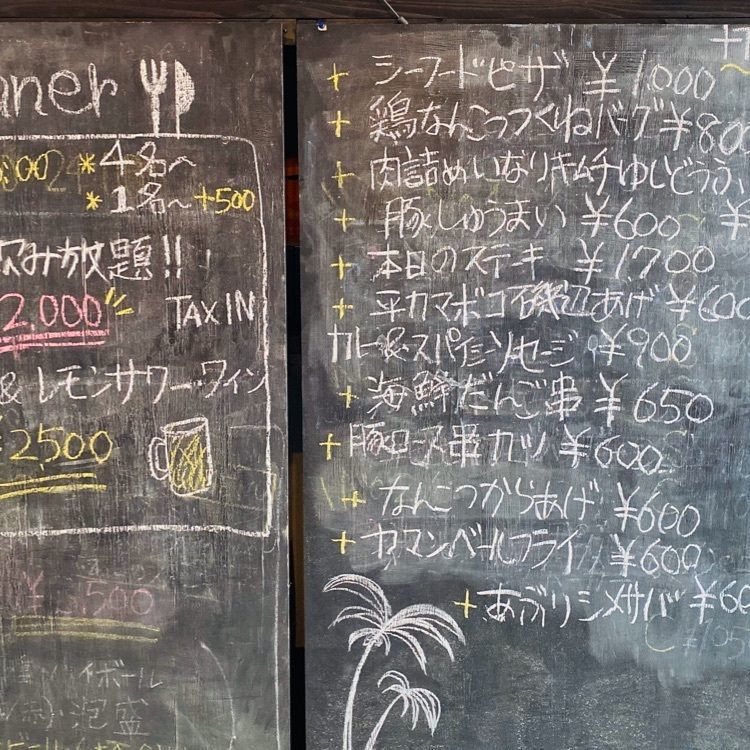 nner
*4名〜
*1名〜+500
飲み放題!!
2,000 TAX IN
& レモンサワー・ワイン
¥2,500
¥ ,500
イボール
泡盛
+ シーフードピザ ¥1,000
+ 鶏なんこつつくねバーグ ¥80
+ 肉詰めいなりキムチゆしどうふ
+ 豚しゅうまい ¥600 ¥
+ 本日のステキ ¥1700
+ 平カマボコ磯辺あげ ¥600
カレー&スパイシーソセージ ¥900
+ 海鮮だんご串 ¥650
+ 豚ロース串カツ ¥600
+ なんこつからあげ ¥600
+ カマンベールフライ ¥600
+ あぶりシメサバ ¥60